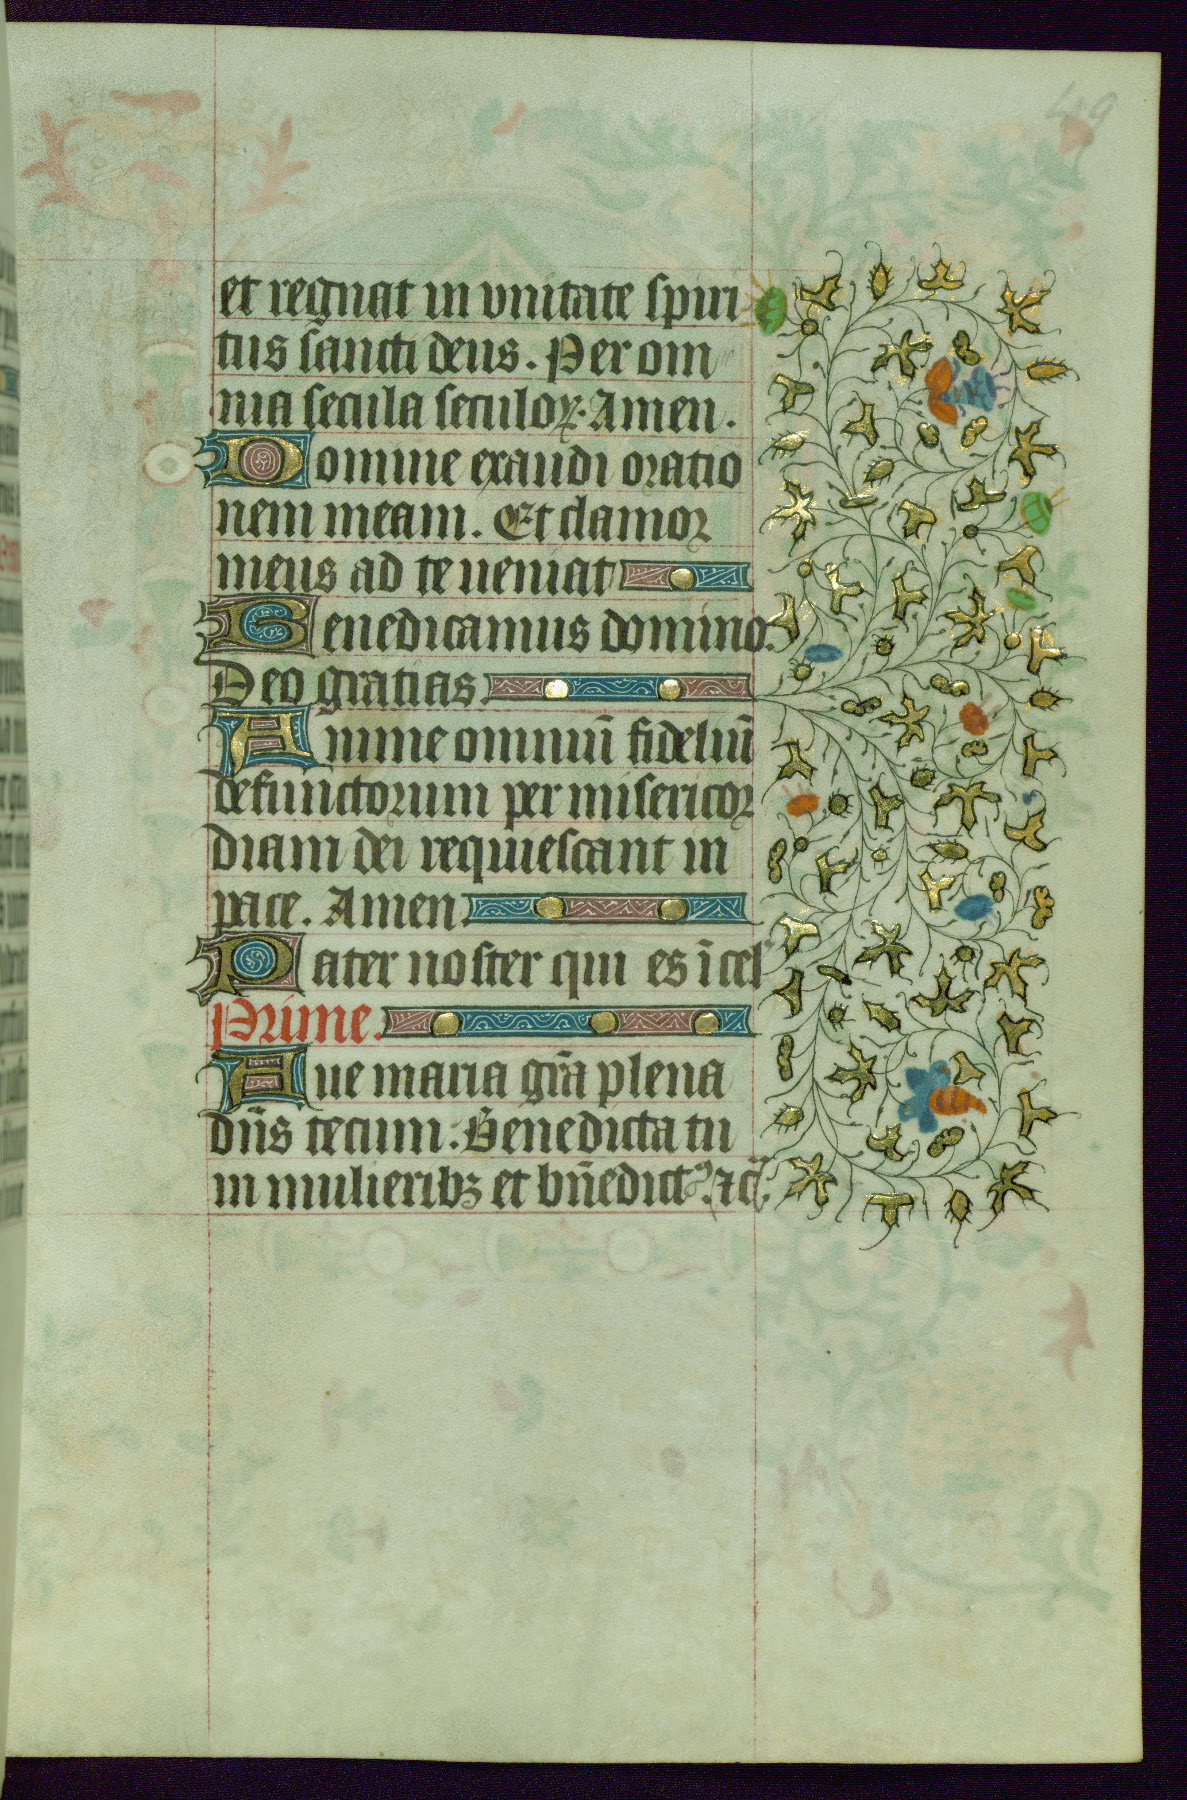 49
et regnat in vnitate spiri
tus sancti deus. Per om
nia secula seculoꝝ. Amen.
Domine exaudi oratio
nem meam. Et clamor
meus ad te ueniat
Benedicamus domino.
Deo gratias
Anime omniū fideliū
defunctorum per misericor
diam dei requiescant in
pace. Amen
Pater noster qui es ī cel
Prime.
Aue maria grā plena
dn̄s tecum. Benedicta tu
in mulieribꝫ et bn̄edictꝰ